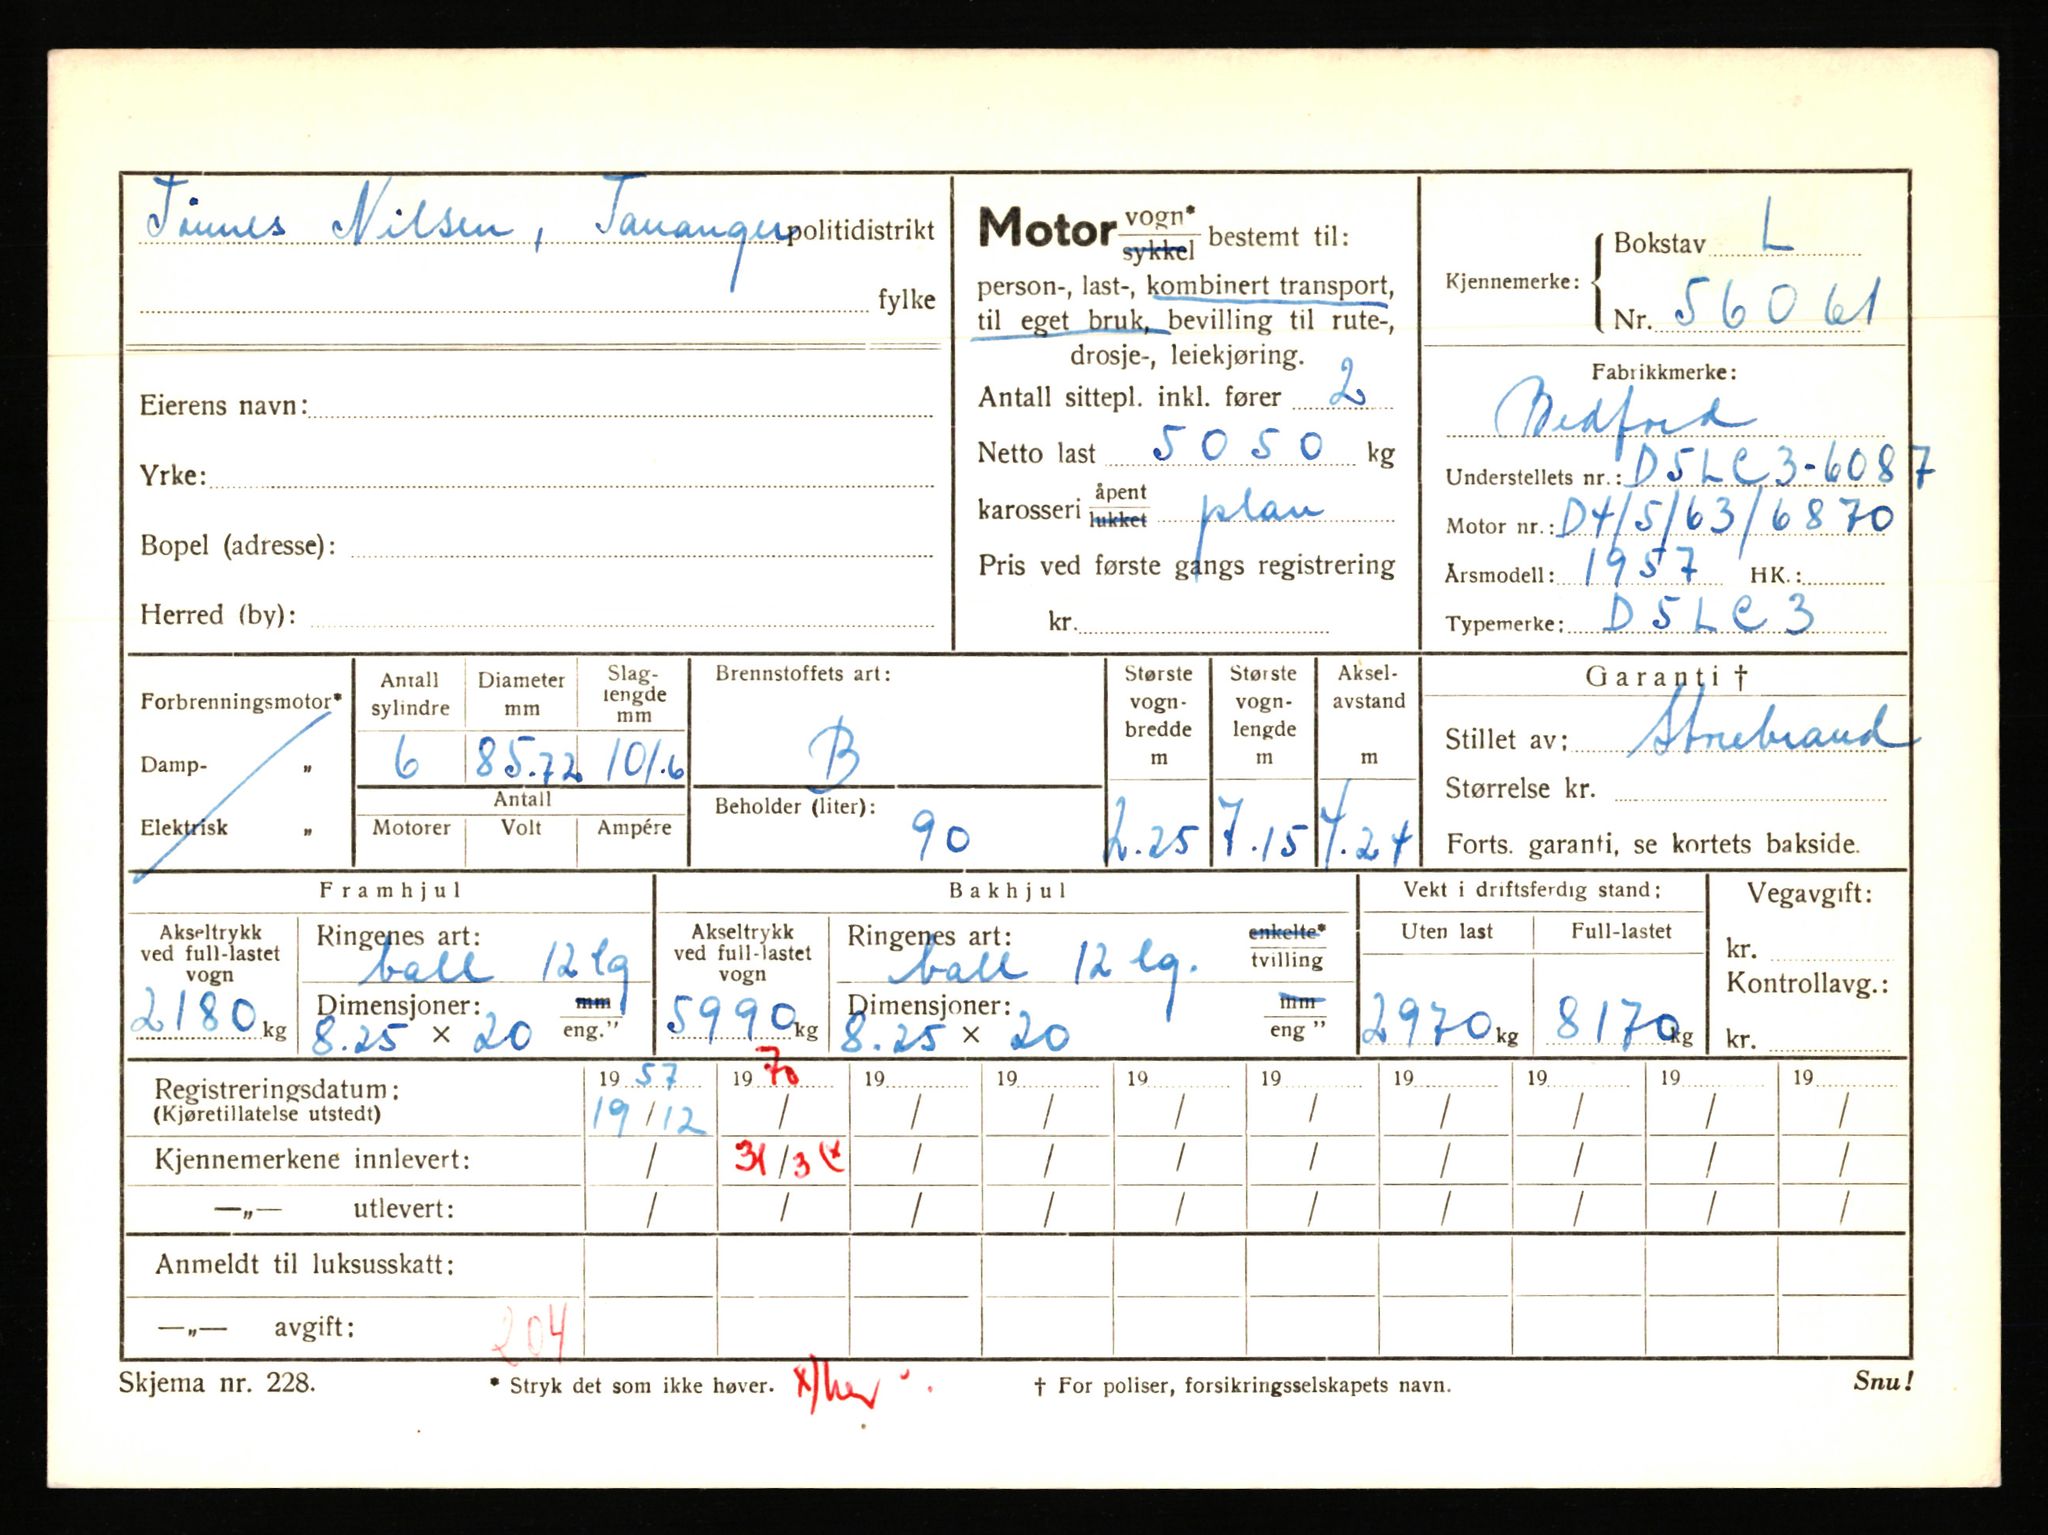 Tønnes Nilsen, Tananger politidistrikt
fylke
Eierens navn:
Yrke:
Bopel (adresse):
Herred (by):
Motor vogn* sykkel bestemt til:
person-, last-, kombinert transport,
til eget bruk, bevilling til rute-,
drosje-, leiekjøring.
Antall sittepl. inkl. fører 2
Netto last 5050 kg
karosseri åpent lukket plan
Pris ved første gangs registrering
kr.
Kjennemerke: Bokstav L
Nr. 56061
Fabrikkmerke:
Bedford
Understellets nr.: D5LC3-6087
Motor nr.: D4/5/63/6870
Årsmodell: 1957 HK.:
Typemerke: D5LC3
Forbrenningsmotor*
Damp- „
Elektrisk „
Antall sylindre
Diameter mm
Slaglengde mm
6 85.72 101.6
Antall
Motorer Volt Ampére
Brennstoffets art:
B
Beholder (liter):
90
Største vogn-bredde m
2.25
Største vogn-lengde m
7.15
Aksel-avstand m
4.24
Garanti †
Stillet av: Storebrand
Størrelse kr.
Forts. garanti, se kortets bakside.
Framhjul
Akseltrykk ved full-lastet vogn
2180 kg
Ringenes art:
ball 12 lg
Dimensjoner: mm
8.25 × 20 eng."
Bakhjul
Akseltrykk ved full-lastet vogn
5990 kg
Ringenes art: enkelte* tvilling
ball 12 lg.
Dimensjoner: mm
8.25 × 20 eng "
Vekt i driftsferdig stand:
Uten last Full-lastet
2970 kg 8170 kg
Vegavgift:
kr.
Kontrollavg.:
kr.
Registreringsdatum: 19 57 19 70 19 19 19 19 19 19 19 19
(Kjøretillatelse utstedt) 19/12 / / / / / / / / /
Kjennemerkene innlevert: / 31/3 (x / / / / / / / /
—„— utlevert: / / / / / / / / / /
Anmeldt til luksusskatt:
—„— avgift: 204
Skjema nr. 228.
* Stryk det som ikke høver.
x)
† For poliser, forsikringsselskapets navn.
Snu!